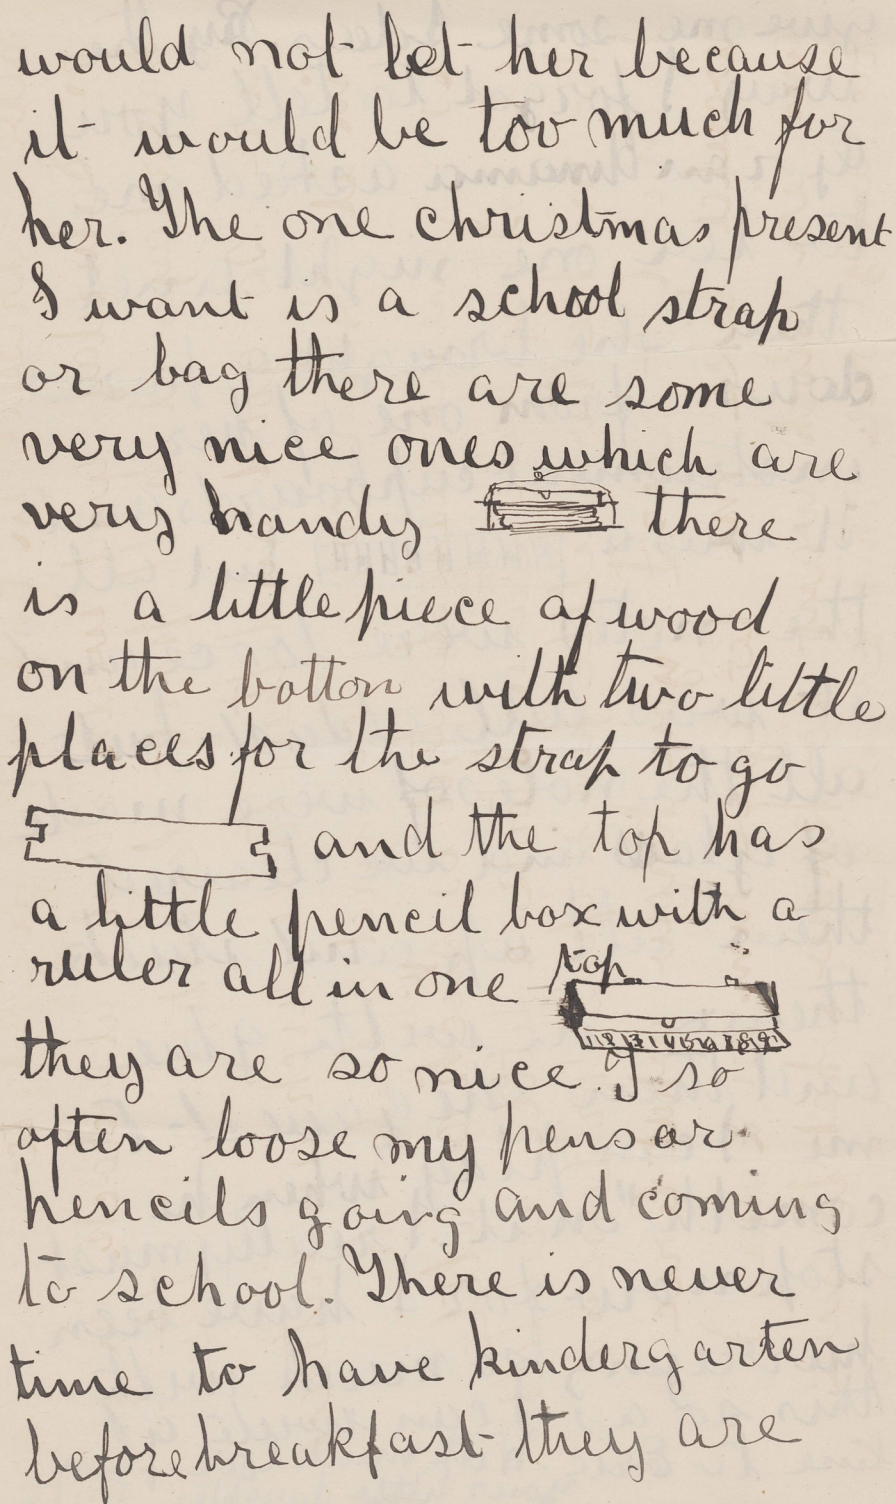 would not let her because
it would be too much for
her. The one christmas present
I want is a school strap
or bag there are some
very nice ones which are
very handy there
is a little piece of wood
on the botton with two little
places for the strap to go
and the top has
a little pencil box with a
ruler all in one top
they are so nice. I so
often loose my pens or
pencils going and coming
to school. There is never
time to have kindergarten
before breakfast they are